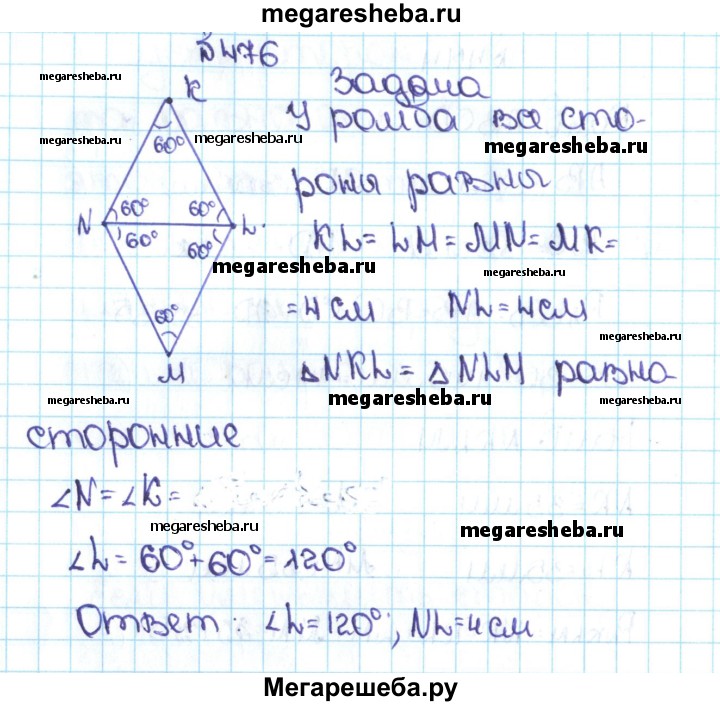 megaresheba.ru
№476
К
megaresheba.ru
Задома
60°
megaresheba.ru
У ромба все сто-
megaresheba.ru
роны равны
N
60°
60°
L
60°
60°
KL = LM = MN = MK =
megaresheba.ru
megaresheba.ru
= 4 см NL = 4 см
60°
megaresheba.ru
М
△NKL = △NLM равно
megaresheba.ru
megaresheba.ru
сторонние
∠N = ∠K =
megaresheba.ru
megaresheba.ru
∠L = 60° + 60° = 120°
Ответ: ∠L = 120°, NL = 4 см
Мегарешеба.ру